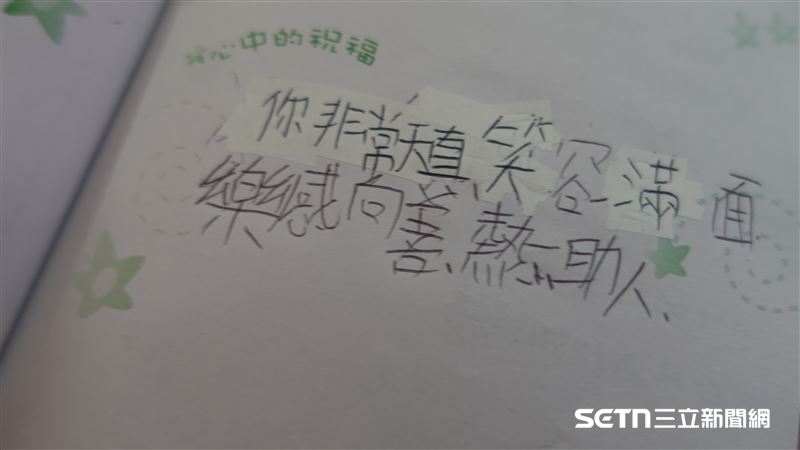 心中的祝福
你非常天真、笑容滿面
樂感向善、熱心助人、
SETN三立新聞網